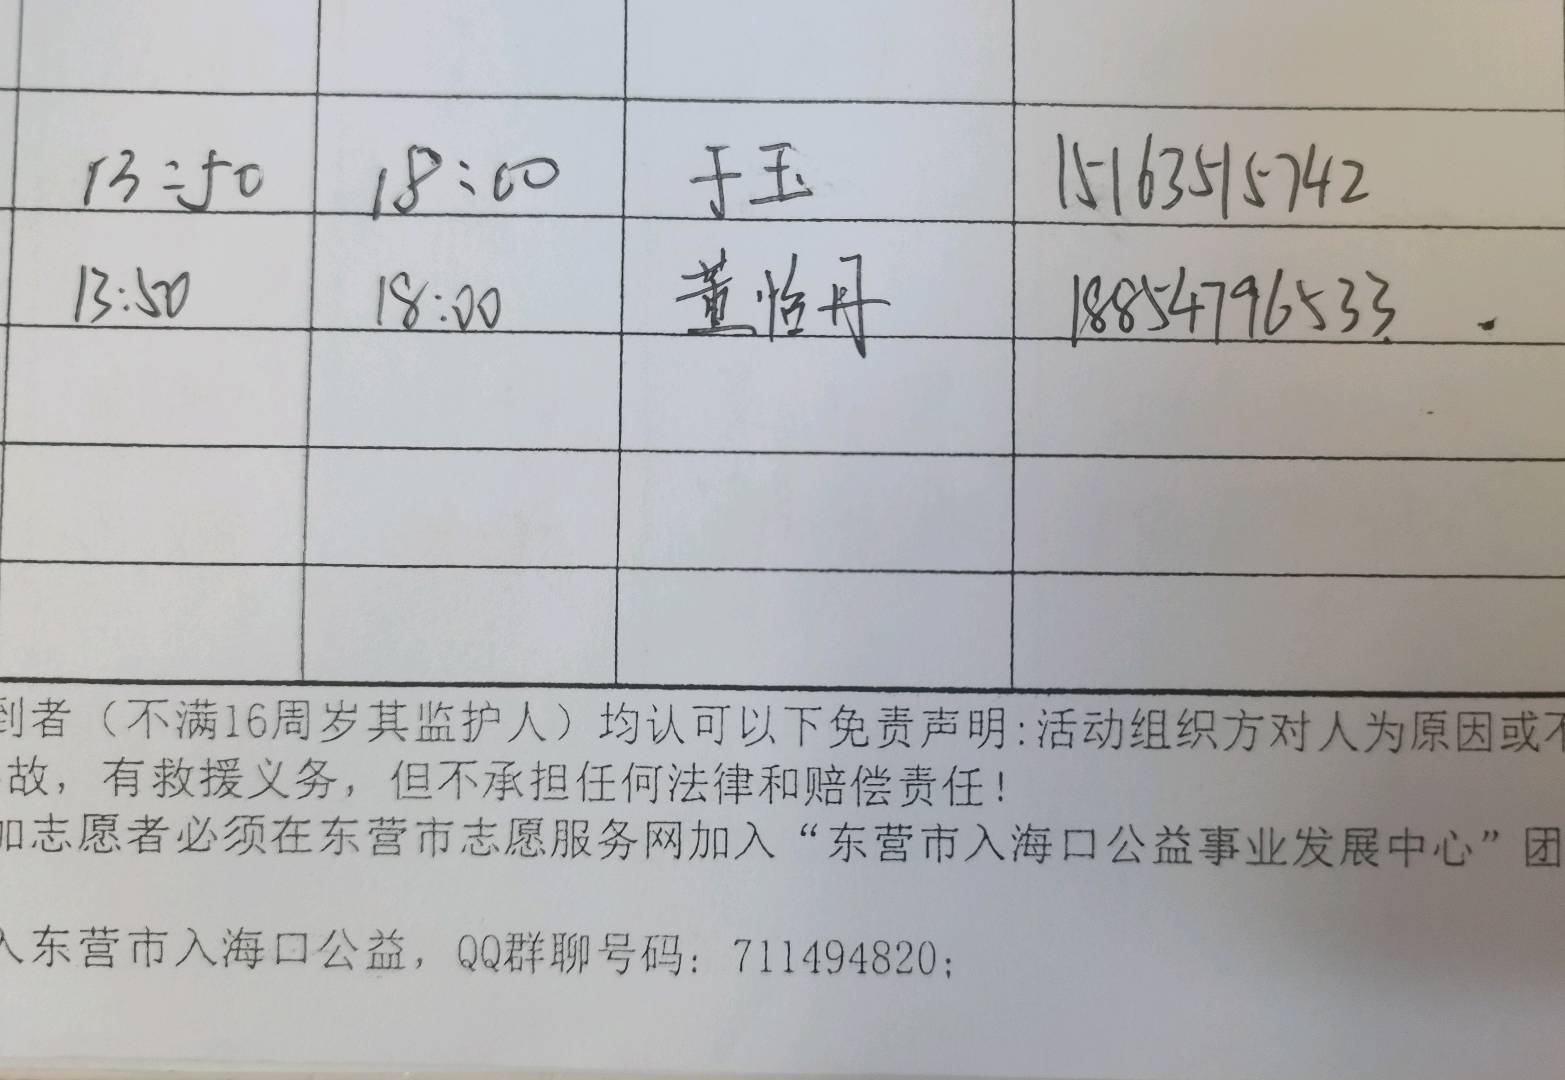 13:50 18:00 于玉 15163515742
13:50 18:00 董怡丹 18854796533
到者（不满16周岁其监护人）均认可以下免责声明:活动组织方对人为原因或不
故，有救援义务，但不承担任何法律和赔偿责任！
加志愿者必须在东营市志愿服务网加入“东营市入海口公益事业发展中心”团
入东营市入海口公益，QQ群聊号码：711494820；